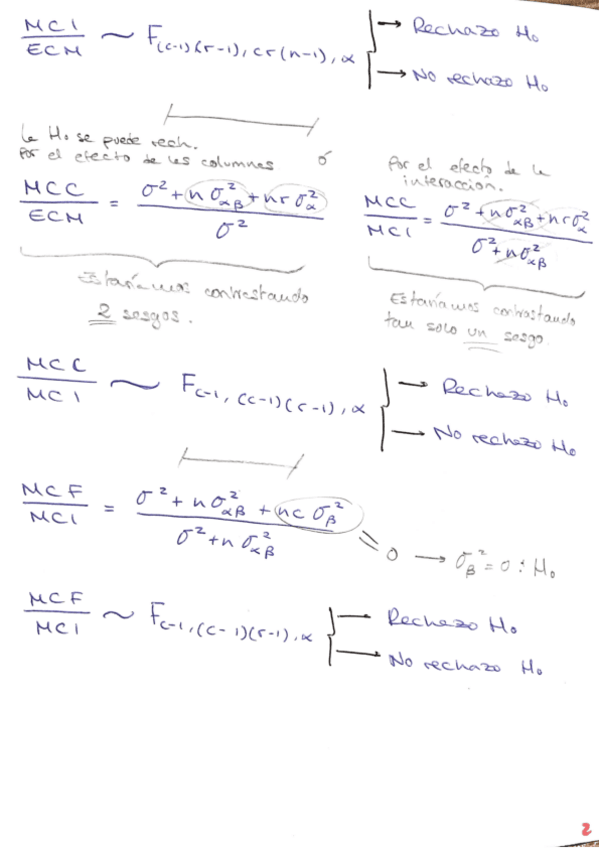 MCI/ECM ~ F(c-1)(r-1), cr(n-1), α → Rechazo H₀
→ No rechazo H₀
La H₀ se puede rech.
Por el efecto de las columnas ó Por el efecto de la interacción.
MCC/ECM = (σ² + nσ²αβ + nrσ²α)/σ² MCC/MCI = (σ² + nσ²αβ + nrσ²α)/(σ² + nσ²αβ)
Estaríamos contrastando
2 sesgos.
Estaríamos contrastando
tan solo un sesgo.
MCC/MCI ~ Fc-1, (c-1)(r-1), α → Rechazo H₀
→ No rechazo H₀
MCF/MCI = (σ² + nσ²αβ + ncσ²β)/(σ² + nσ²αβ) = 0 → σ²β = 0 : H₀
MCF/MCI ~ Fc-1, (c-1)(r-1), α → Rechazo H₀
→ No rechazo H₀
2